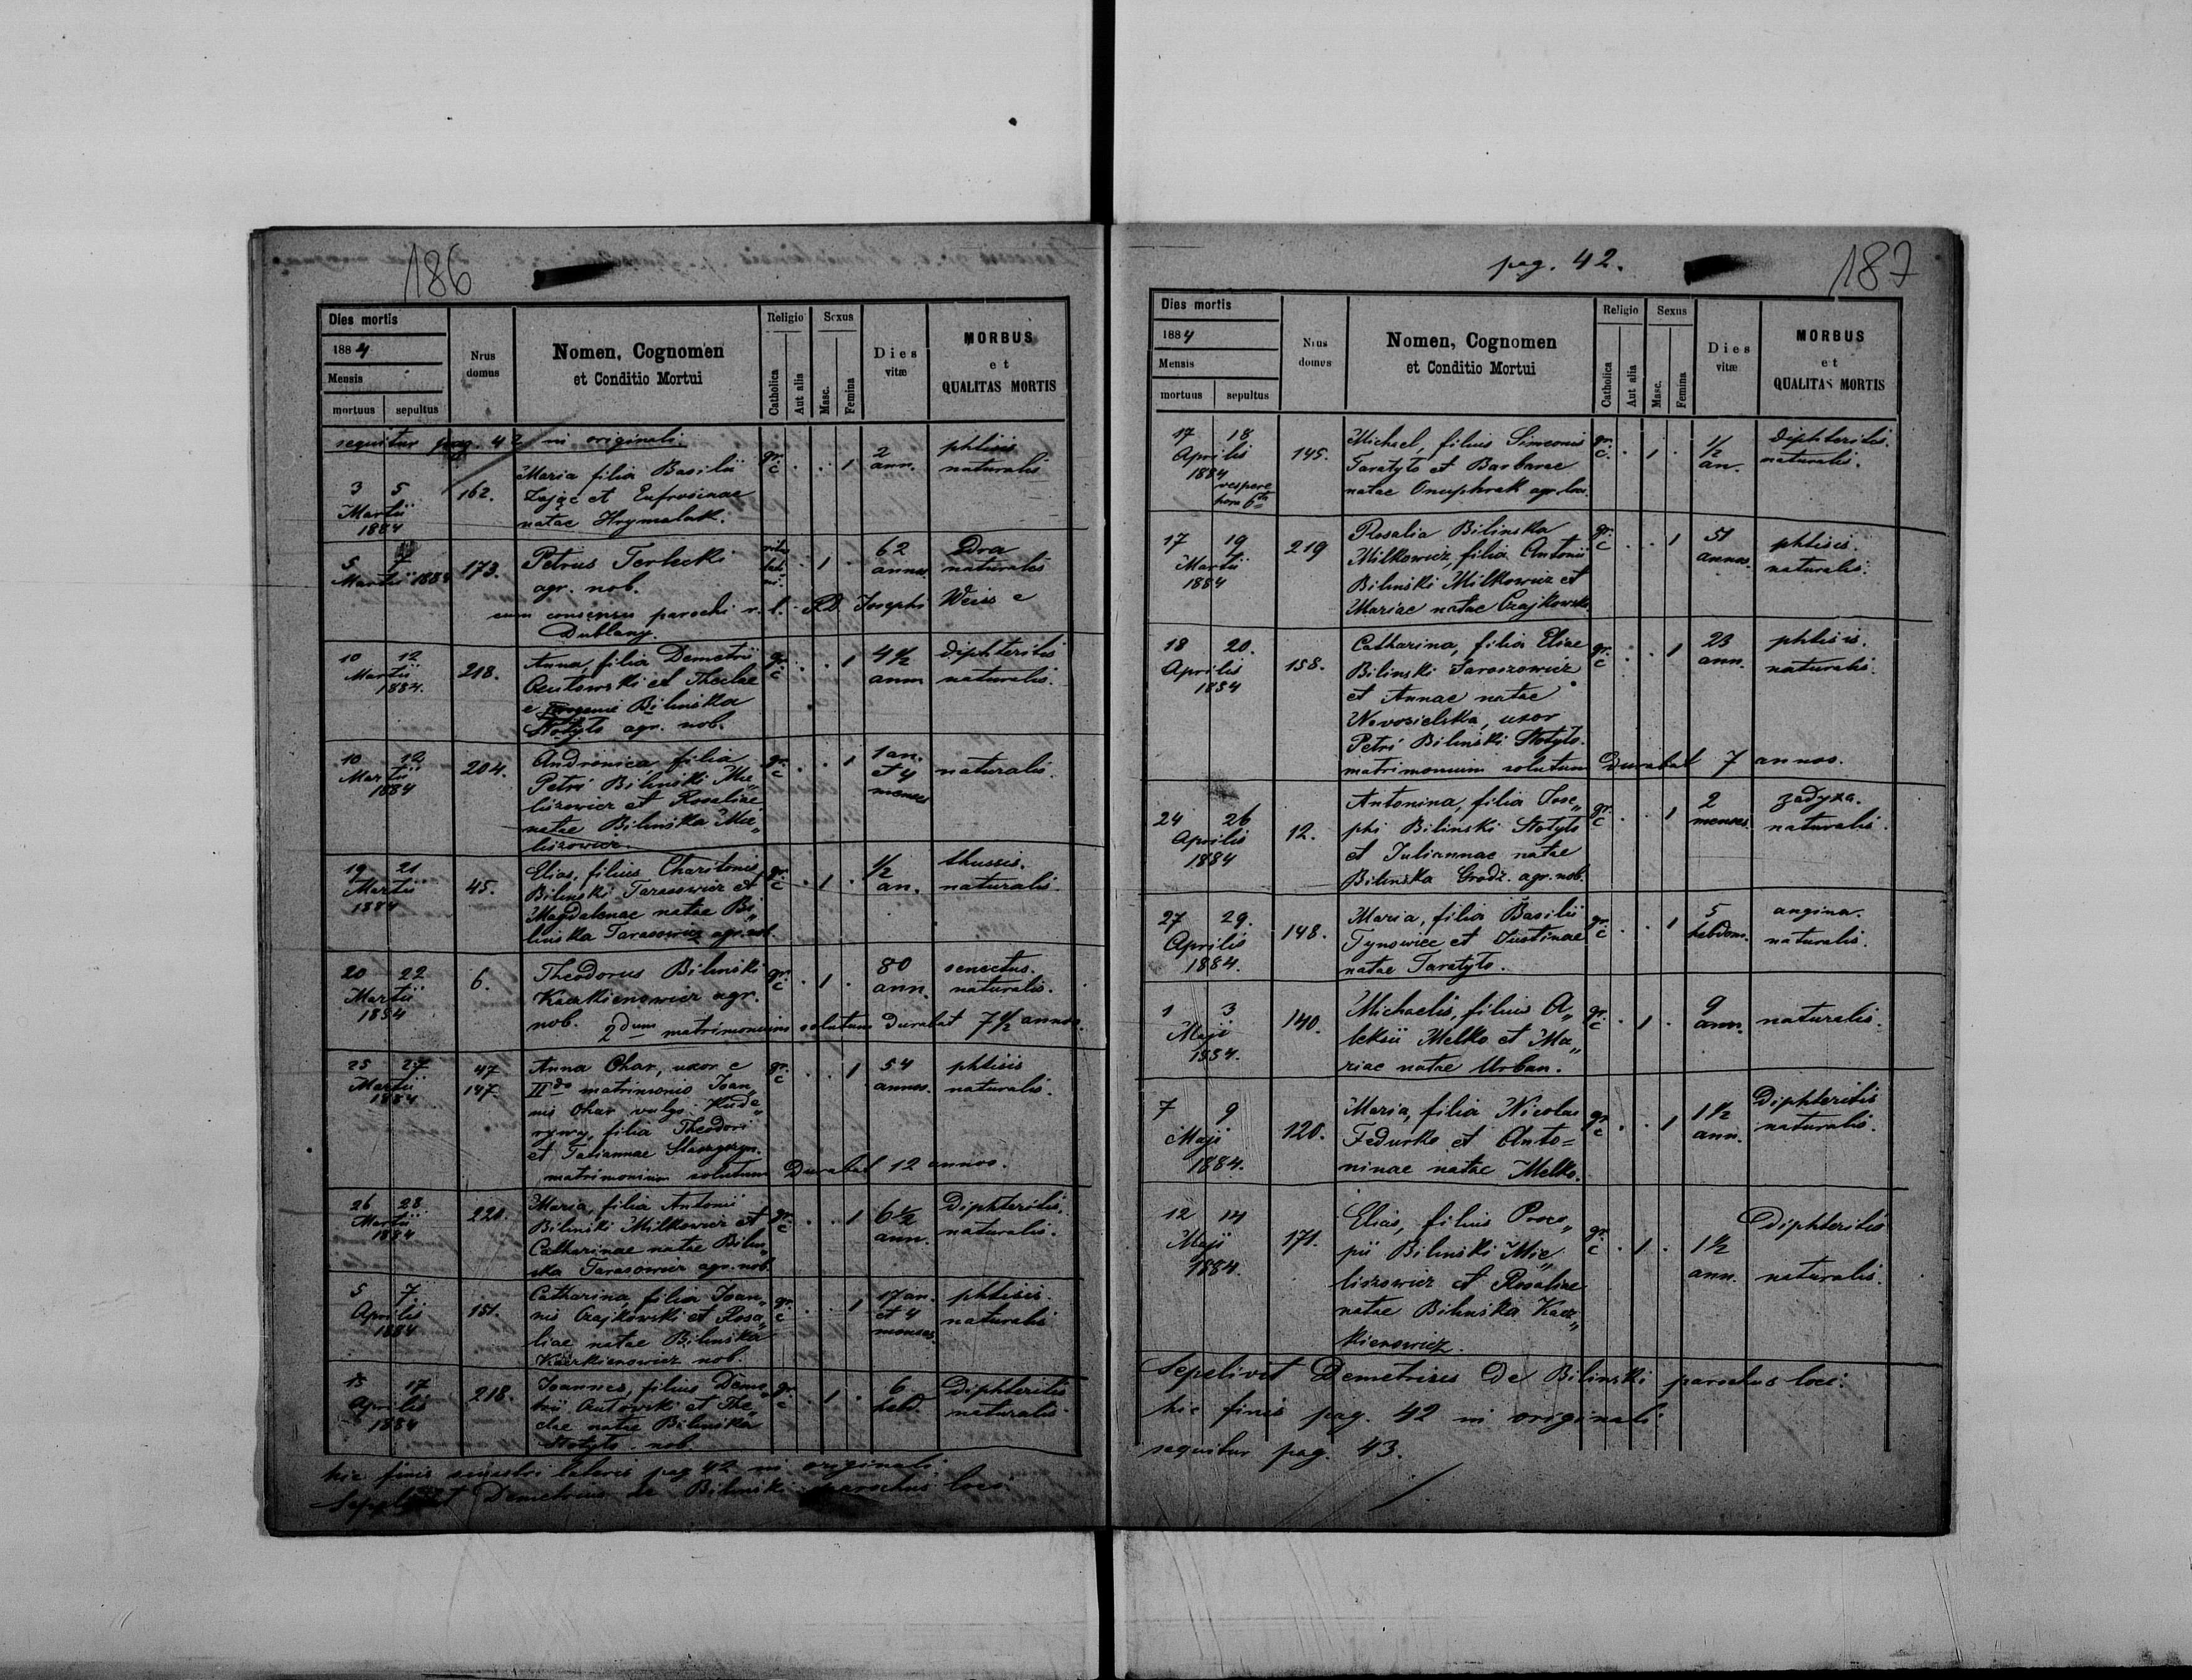 186
Dies mortis
1884
Mensis
mortuus sepultus
Nrus domus
Nomen, Cognomen
et Conditio Mortui
Religio
Catholica
Aut alia
Sexus
Masc.
Femina
Dies vitæ
MORBUS
et
QUALITAS MORTIS
sequitur pag. 42 in originali.
3 5 Martii 1884 162. Maria filia Basilii gr. c . . . 1 2 ann. phtisis naturalis
Zając et Eufrosinae
natae Hrymalak.
5 7 Martii 1884 173. Petrus Terlecki . 1 . 62 annos. naturalis
agr. nob.
cum consensu parochi r. l. RD. Josephi Weiss e
Dublany.
10 12 Martii 1884. 218. Anna, filia Demetrii gr. c . . 1 4 1/2 ann diphteritis naturalis.
et Theclae
e Bilinska
Stotyło agr. nob.
10 12 Martii 1884 204. Andronica filia gr. c . . 1 1 an. et 4 menses naturalis.
Petri Bilinski Mie„
liszowicz et Rosaliae
natae Bilinska Mie„
liszowicz.
19 21 Martii 1884 45. Elias, filius Charitonis gr. c . 1 . 1/2 an. thussis. naturalis.
Bilinski Tarasowicz et
Magdalenae natae Bi„
linska Tarasowicz agr. nob.
20 22 Martii 1884 6. Theodorus Bilinski gr. c . 1 . 80 ann. senectus. naturalis.
Kaczkienowicz agr.
nob. 2dum matrimonium solutum durabat 7 1/2 annos.
25 27 Martii 1884 47 147. Anna Ohar, uxor e gr. c . . 1 54 annos. phtisis naturalis.
IIdo matrimonio Joan„
nis Ohar vulgo Kude„
rywy, filia Theodori
et Tatiannae
matrimonium solutum durabat 12 annos.
26 28 Martii 1884 220. Maria, filia Antonii gr. c . . 1 6 1/2 ann. Diphteritis. naturalis.
Bilinski Milkowicz et
Catharinae natae Bilin„
ska Tarasowicz agr. nob.
5 7 Aprilis 1884 151. Catharina, filia Joan„ gr. c . . 1 17 an. et 4 menses. phtisis. naturalis
nis Czajkowski et Rosa„
liae natae Bilinska
Kaczkienowicz nob.
15 17 Aprilis 1884 218. Joannes, filius Deme„ gr. c . 1 . 6 hebd. Diphteritis naturalis.
trii et The„
clae natae Bilinska
Stotyło. nob.
hic finis sinistri lateris pag 42 in originali
Sepelivit Demetrius de Bilinski parochus loci
pag. 42.
187
Dies mortis
1884
Mensis
mortuus sepultus
Nrus domus
Nomen, Cognomen
et Conditio Mortui
Religio
Catholica
Aut alia
Sexus
Masc.
Femina
Dies vitæ
MORBUS
et
QUALITAS MORTIS
17 18 Aprilis 1884 vespere hora 6ta 145. Michael, filius Simeonis gr. c. . 1 . 1/2 an. diphteritis. naturalis.
Taratyło et Barbarae
natae Onuphrak agr. loci.
17 19 Martii 1884 219 Rosalia Bilinska gr. c . . 1 51 annos. phtisis. naturalis.
Milkowicz, filia Antonii
Bilinski Milkowicz et
Mariae natae Czajkowska.
18 20. Aprilis 1884 158. Catharina, filia Eliae gr. c . . 1 23 ann. phtisis. naturalis.
Bilinski Jaroszowicz
et Annae natae
Novosielska, uxor
Petri Bilinski Stotyło.
matrimonium solutum durabat 7 annos.
24 26 Aprilis 1884 12. Antonina, filia Jose„ gr. c . . 1 2 menses. zadyxa. naturalis.
phi Bilinski Stotyło
et Juliannae natae
Bilinska Grodz. agr. nob.
27 29. Aprilis 1884. 148. Maria, filia Basilii gr. c . . 1 5 hebdom. angina. naturalis.
Tynowiec et Justinae
natae Taratyło.
1 3 Maji 1884. 140. Michaelis, filius A„ gr. c . 1 . 9 ann. naturalis.
leksii Melko et Ma„
riae natae Urban.
7 9 Maji 1884. 120. Maria, filia Nicolai gr. c . . 1 1 1/2 ann. Diphteritis naturalis.
Fedurko et Anto=
ninae natae Melko.
12 14 Maji 1884. 171. Elias, filius Proco„ gr. c . 1 . 1 1/2 ann. Diphteritis naturalis.
pii Bilinski Mie„
liszowicz et Rosaliae
natae Bilinska Kacz„
kienowicz.
Sepelivit Demetrius de Bilinski parochus loci.
hic finis pag. 42 in originali
sequitur pag. 43.